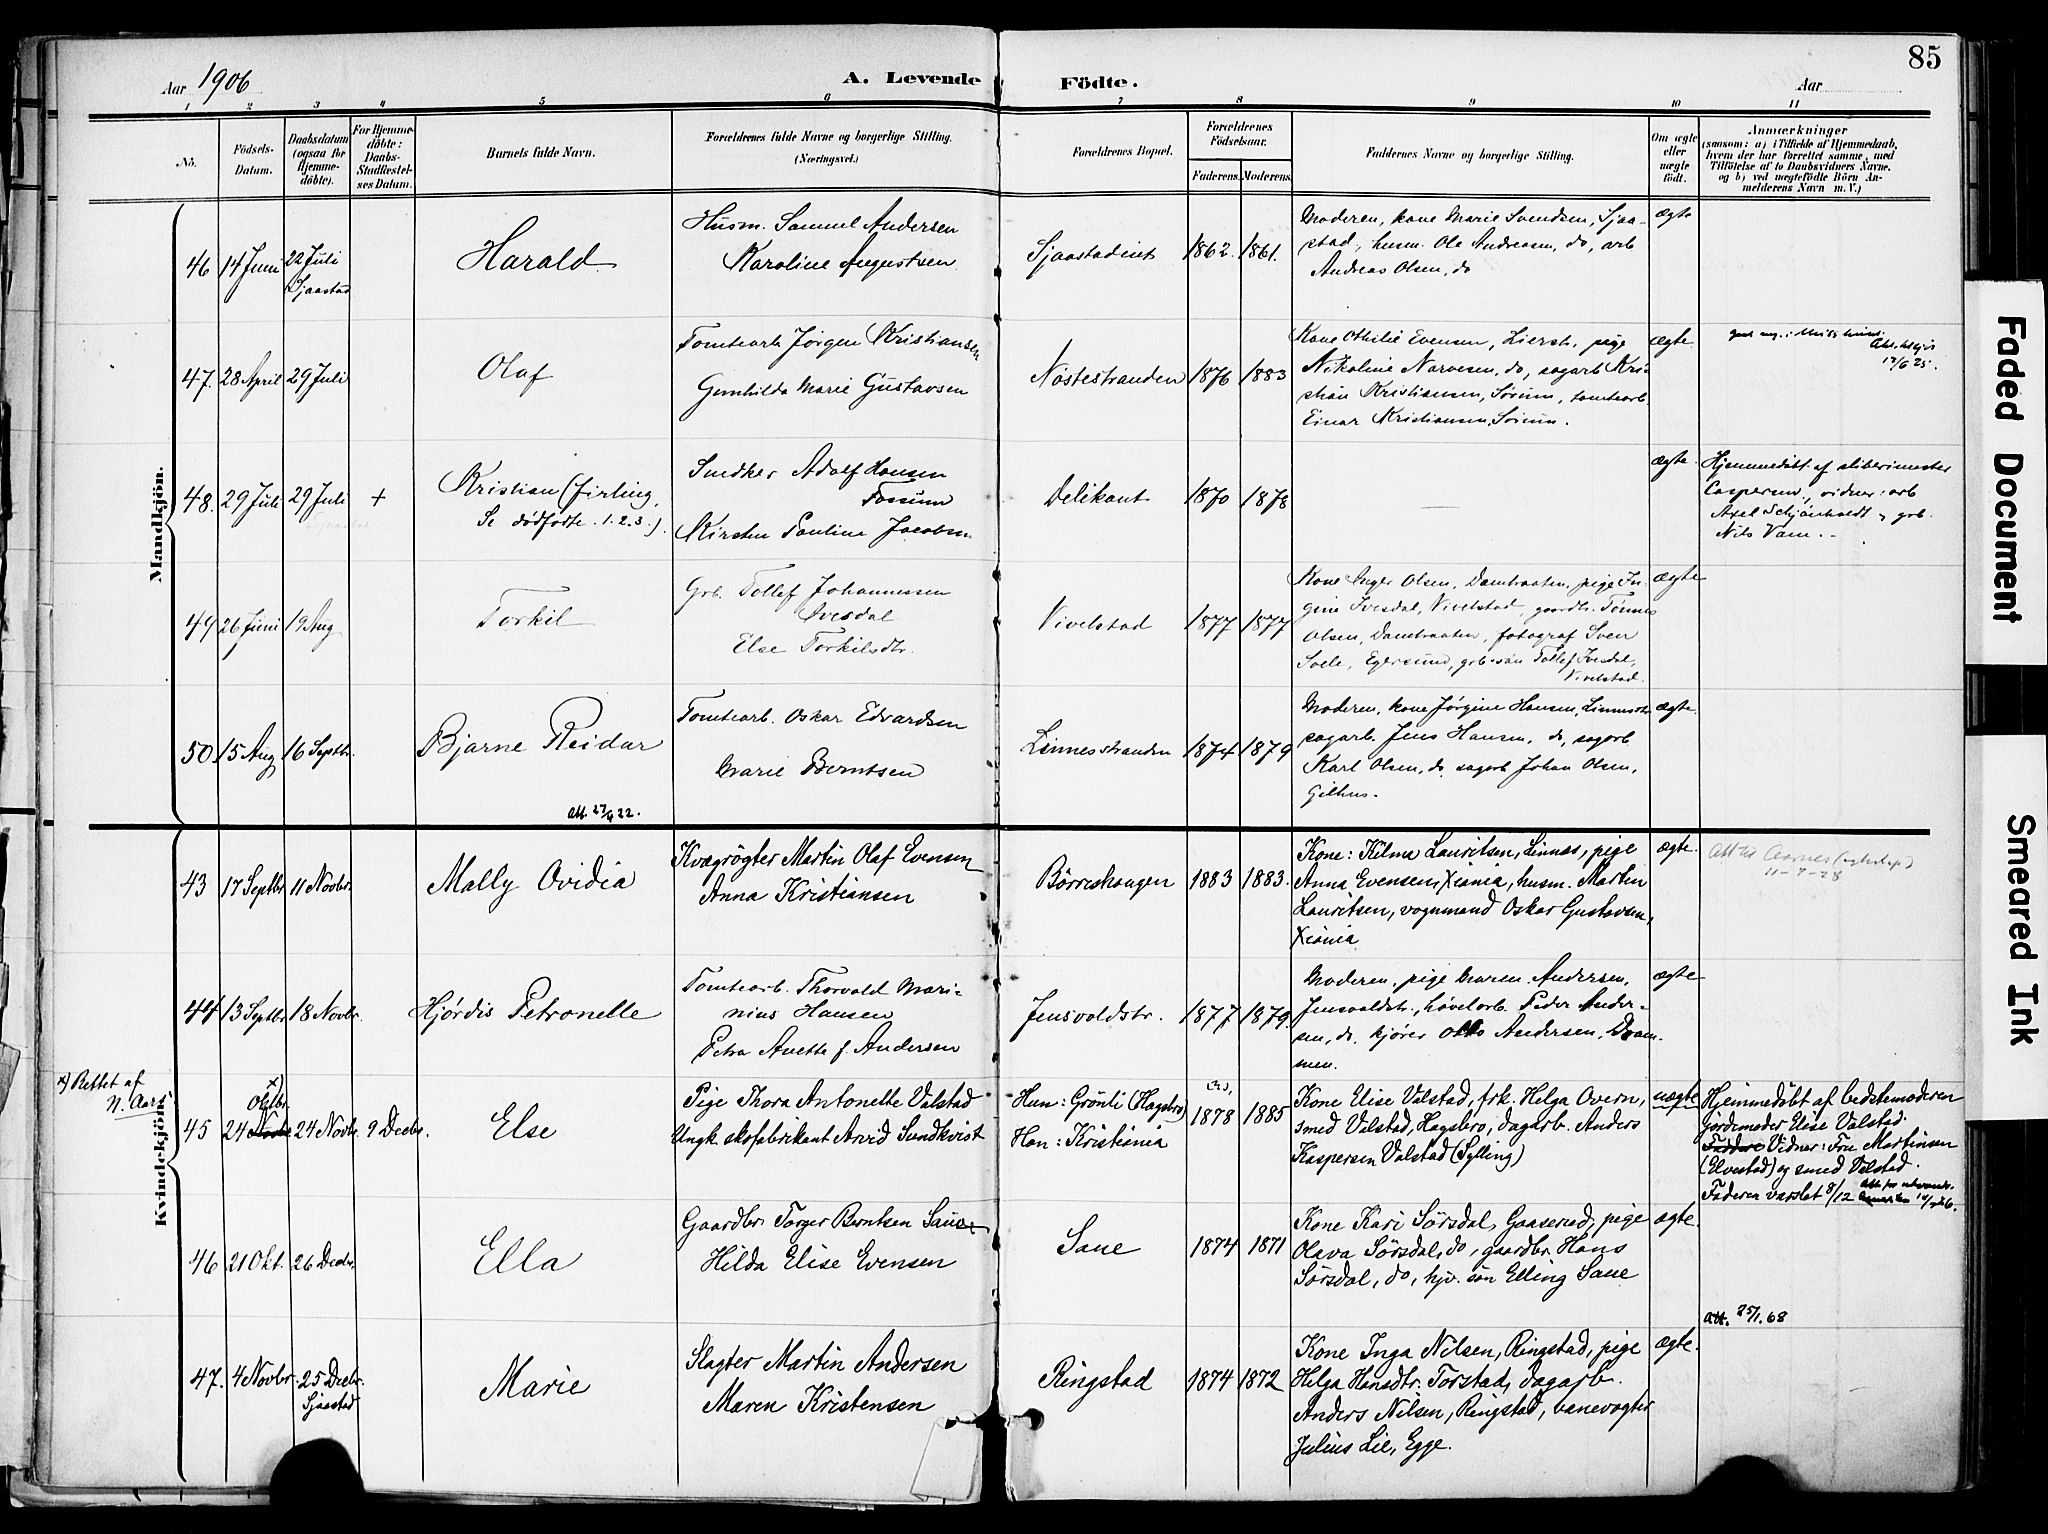 85
Aar 1906
A. Levende Födte.
Aar
1 2 3 4 5 6 7 8 9 10 11
No.
Födsels-
Datum.
Daabsdatum
(ogsaa for
Hjemme-
döbte).
For Hjemme-
döbte:
Daabs-
Stadfæstel-
ses Datum.
Barnets fulde Navn.
Forældrenes fulde Navne og borgerlige Stilling.
(Næringsvei.)
Forældrenes Bopæl.
Forældrenes
Födselsaar.
Faderens. Moderens.
Faddernes Navne og borgerlige Stilling.
Om ægte
eller
uægte
födt.
Anmærkninger
(saasom: a) i Tilfælde af Hjemmedaab,
hvem der har forrettet samme, med
Tilföielse af to Daabsvidners Navne.
og b) ved uægtefödte Börn An-
melderens Navn m. V.)
Mandkjön.
46 14 Juni 22 Juli
Sjaastad
Harald
Husm. Samuel Andersen
Karoline Augustsen
Sjaastadeiet 1862. 1861.
Moderen, kone Marie Svendsen, Sjaa-
stad, husm. Ole Andreasen, do, arb
Andreas Olsen, do
ægte
47. 28 April 29 Juli
Olaf
Tomtearb Jørgen Kristiansen
Gunhilda Marie Gustavsen
Nøstestranden 1876 1883
Kone Othilie Evensen, Lierstr, pige
Nikoline Narvesen, do, sagarb Kri-
stian Kristiansen, Sørum, tomtearb.
Einar Kristiansen, Sørum.
ægte
12/6 25.
48. 29 Juli 29 Juli +
Kristian (firling,
Se dødfødte 1.2.3.)
Snedker Adolf Hansen
Fossum
Kirsten Pauline Jacobsen
Delikant 1870 1878
ægte
Hjemmedöbt af sliberimester
Caspersen, vidner: arb
Axel Schjønholdt og grb.
Nils Vam.
49 26 Juni 19 Aug
Torkil
Grb. Tollef Johannessen
Ivesdal
Else Torkilsdtr.
Vivelstad 1877 1877
Kone Inger Olsen, Dambraaten, pige In-
gine Ivesdal, Vivelstad, gaardbr. Tønnes
Olsen, Dambraaten, fotograf Sven
Svele, Egersund, grb.søn Tollef Ivesdal,
Vivelstad.
ægte
50. 15 Aug 16 Septbr.
Bjarne Reidar
Att. 27/9 22.
Tomtearb. Oskar Edvardsen
Marie Berntsen
Linnesstranden 1874 1879
Moderen, kone Jørgine Hansen, Linnesstr
sagarb. Jens Hansen, do, sagarb
Karl Olsen, do sagarb Johan Olsen,
Gilhus.
ægte
Kvindekjön.
43 17 Septbr 11 Novbr.
Mally Ovidia
Kvægrögter Martin Olaf Evensen
Anna Kristiansen
Börreshaugen 1883 1883.
Kone: Kilma Lauritsen, Linnæs, pige
Anna Evensen, Xiania, husm. Martin
Lauritsen, vognmand Oskar Gustavsen,
Xiania
ægte.
Att til Aarnes
11-7-28
44 13 Septbr 18 Novbr.
Hjørdis Petronelle
Tomtearb. Thorvald Mari-
nius Hansen
Petra Anette f. Andersen
Jensvoldstr. 1877 1879.
Moderen, pige Maren Andersen,
Jensvoldstr., høvelarb. Peder Ander-
sen, do. kjører Otto Andersen, Dram-
men.
ægte
x) Rettet af
N. Aars
45 24 Novbr x)
Oktbr.
24 Novbr. 9 Decbr.
Else
Pige Thora Antonette Valstad
Ungk. skofabrikant Arvid Sundkvist
Hun: Grönli (Hagsbro)
Han: Kristiania
1878 1885
Kone Elise Valstad, frk. Helga Overn,
smed Valstad, Hagsbro, dagarb. Anders
Kaspersen Valstad (Sylling)
uægte
Hjemmedöbt af bedstemoderen
Jordemoder Elise Valstad
Faddere Vidner: Fru Martinsen
(Elvestad) og smed Valstad.
Faderen varslet 8/12
46 21 Okt. 26 Decbr.
Ella
Gaardbr. Torger Berntsen Saue
Hilda Elise Evensen
Saue 1874 1871
Kone Kari Sörsdal, Gaaserud, pige
Olava Sörsdal, do, gaardbr. Hans
Sörsdal, do, hjv. sön Elling Saue
ægte.
Att. 25/1.68
47. 4 Novbr. 25 Decbr.
Sjaastad
Marie
Slagter Martin Andersen
Maren Kristensen
Ringstad 1874 1872
Kone Inga Nilsen, Ringstad, pige
Helga Hansdtr. Torstad, dagarb.
Anders Nilsen, Ringstad, banevogter
Julius Lie, Egge.
ægte.
Faded Document
Smeared Ink